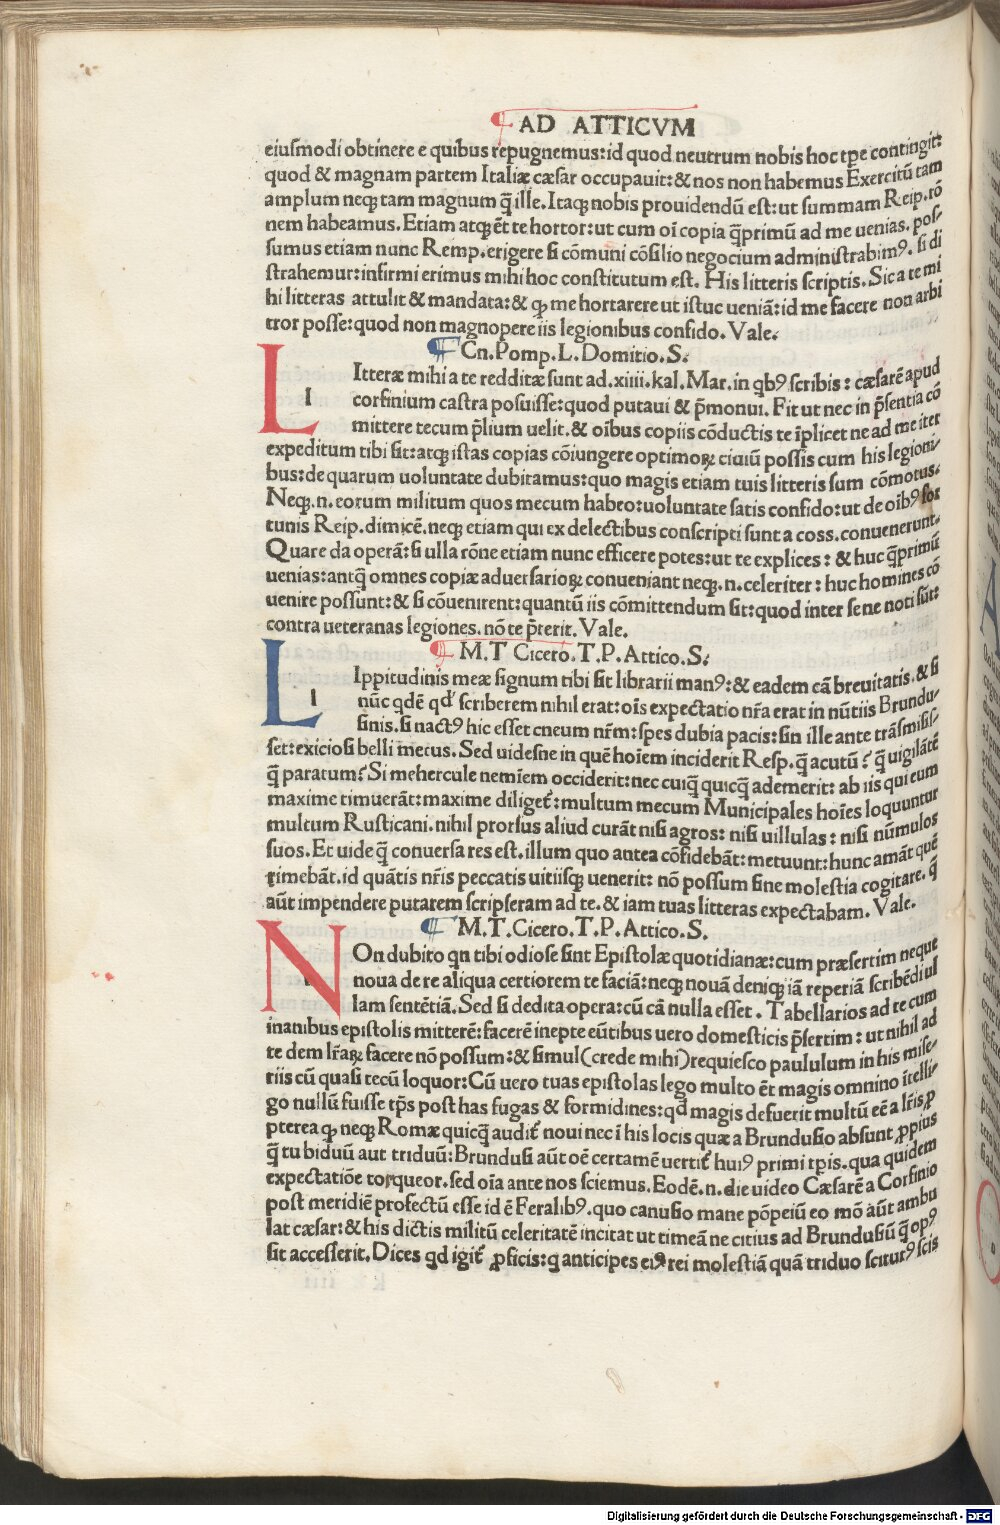 AD ATTICVM
eiusmodi obtinere e quibus repugnemus: id quod neutrum nobis hoc tpe contingit:
quod & magnam partem Italiæ cæsar occupauit: & nos non habemus Exercitū tam
amplum neqꝫ tam magnum q̃ ille. Itaqꝫ nobis prouidendū est: ut summam Reip. rō
nem habeamus. Etiam atqꝫ ēt te hortor: ut cum oī copia q̃primū ad me uenias. pos-
sumus etiam nunc Remp. erigere si cōmuni cōsilio negocium administrabimꝰ. si di
strahemur: infirmi erimus mihi hoc constitutum est. His litteris scriptis. Sic a te mi
hi litteras attulit & mandata: & ꝙ me hortarere ut istuc ueniā: id me facere non arbi
tror posse: quod non magnopere iis legionibus confido. Vale.
Cn. Pomp. L. Domitio. S.
LItteræ mihi a te redditæ sunt ad. xiiii. kal. Mar. in qbꝰ scribis: cæsarē apud
corfinium castra posuisse: quod putaui & p̄monui. Fit ut nec in p̄sentia cō
mittere tecum p̄lium uelit. & oībus copiis cōductis te īplicet ne ad me iter
expeditum tibi sit: atqꝫ istas copias cōiungere optimoꝝ ciuiū possis cum his legioni-
bus: de quarum uoluntate dubitamus: quo magis etiam tuis litteris sum cōmotus.
Neqꝫ. n. eorum militum quos mecum habeo: uoluntate satis confido: ut de oībꝰ for
tunis Reip. dimicē. neqꝫ etiam qui ex delectibus conscripti sunt a coss. conuenerunt.
Quare da operā: si ulla rōne etiam nunc efficere potes: ut te explices: & huc q̃primū
uenias: antq̃ omnes copiæ aduersarioꝝ conueniant neqꝫ. n. celeriter: huc homines cō
uenire possunt: & si cōuenirent: quantū iis cōmittendum sit: quod inter se ne noti sūt:
contra ueteranas legiones. nō te p̄terit. Vale.
M. T Cicero. T. P. Attico. S.
LIppitudinis meæ signum tibi sit librarii manꝰ: & eadem cā breuitatis. & si
nūc qdē qd scriberem nihil erat: oīs expectatio nr̄a erat in nūtiis Brundu-
sinis. si nactꝰ hic esset cneum nr̄m: spes dubia pacis: sin ille ante trāsmisis-
set: exiciosi belli metus. Sed uidesne in quē hoīem inciderit Resp. q̃ acutū? q̃ uigilātē
q̃ paratum? Si mehercule nemīem occiderit: nec cuiq̃ quicq̃ ademerit: ab iis qui eum
maxime timuerāt: maxime diliget̄: multum mecum Municipales hoīes loquuntur
multum Rusticani. nihil prorsus aliud curāt nisi agros: nisi uillulas: nisi nūmulos
suos. Et uide q̃ conuersa res est. illum quo antea cōfidebāt: metuunt: hunc amāt quē
timebāt. id quātis nr̄is peccatis uitiisqꝫ uenerit: nō possum sine molestia cogitare. q̃
aūt impendere putarem scripseram ad te. & iam tuas litteras expectabam. Vale.
M. T. Cicero. T. P. Attico. S.
NOn dubito qn tibi odiose sint Epistolæ quotidianæ: cum præsertim neque
noua de re aliqua certiorem te faciā: neqꝫ nouā deniqꝫ iā reperiā scribēdi ul
lam sentētiā. Sed si dedita opera: cū cā nulla esset. Tabellarios ad te cum
inanibus epistolis mitterē: facerē inepte eūtibus uero domesticis p̄sertim: ut nihil ad
te dem lr̄aꝝ facere nō possum: & simul (crede mihi) requiesco paululum in his mise-
riis cū quasi tecū loquor: Cū uero tuas epistolas lego multo ēt magis omnino ītelli-
go nullū fuisse tp̄s post has fugas & formidines: qd magis defuerit multū eē a lr̄is ꝓ
pterea ꝙ neqꝫ Romæ quicq̃ audit̄ noui nec ī his locis quæ a Brundusio absunt ꝓpius
q̃ tu biduū aut triduū: Brundusi aūt oē certamē uertit̄ huiꝰ primi tpis. qua quidem
expectatiōe torqueor. sed oīa ante nos sciemus. Eodē. n. die uideo Cæsarē a Corfinio
post meridiē profectū esse id ē Feralibꝰ. quo canusio mane pōpeiū eo mō aūt ambu
lat cæsar: & his dictis militū celeritatē incitat ut timeā ne citius ad Brundusiū q̃ opꝰ
sit accesserit. Dices qd igit̄ ꝓficis: q anticipes eiꝰ rei molestiā quā triduo sciturꝰ scis
Digitalisierung gefördert durch die Deutsche Forschungsgemeinschaft - DFG